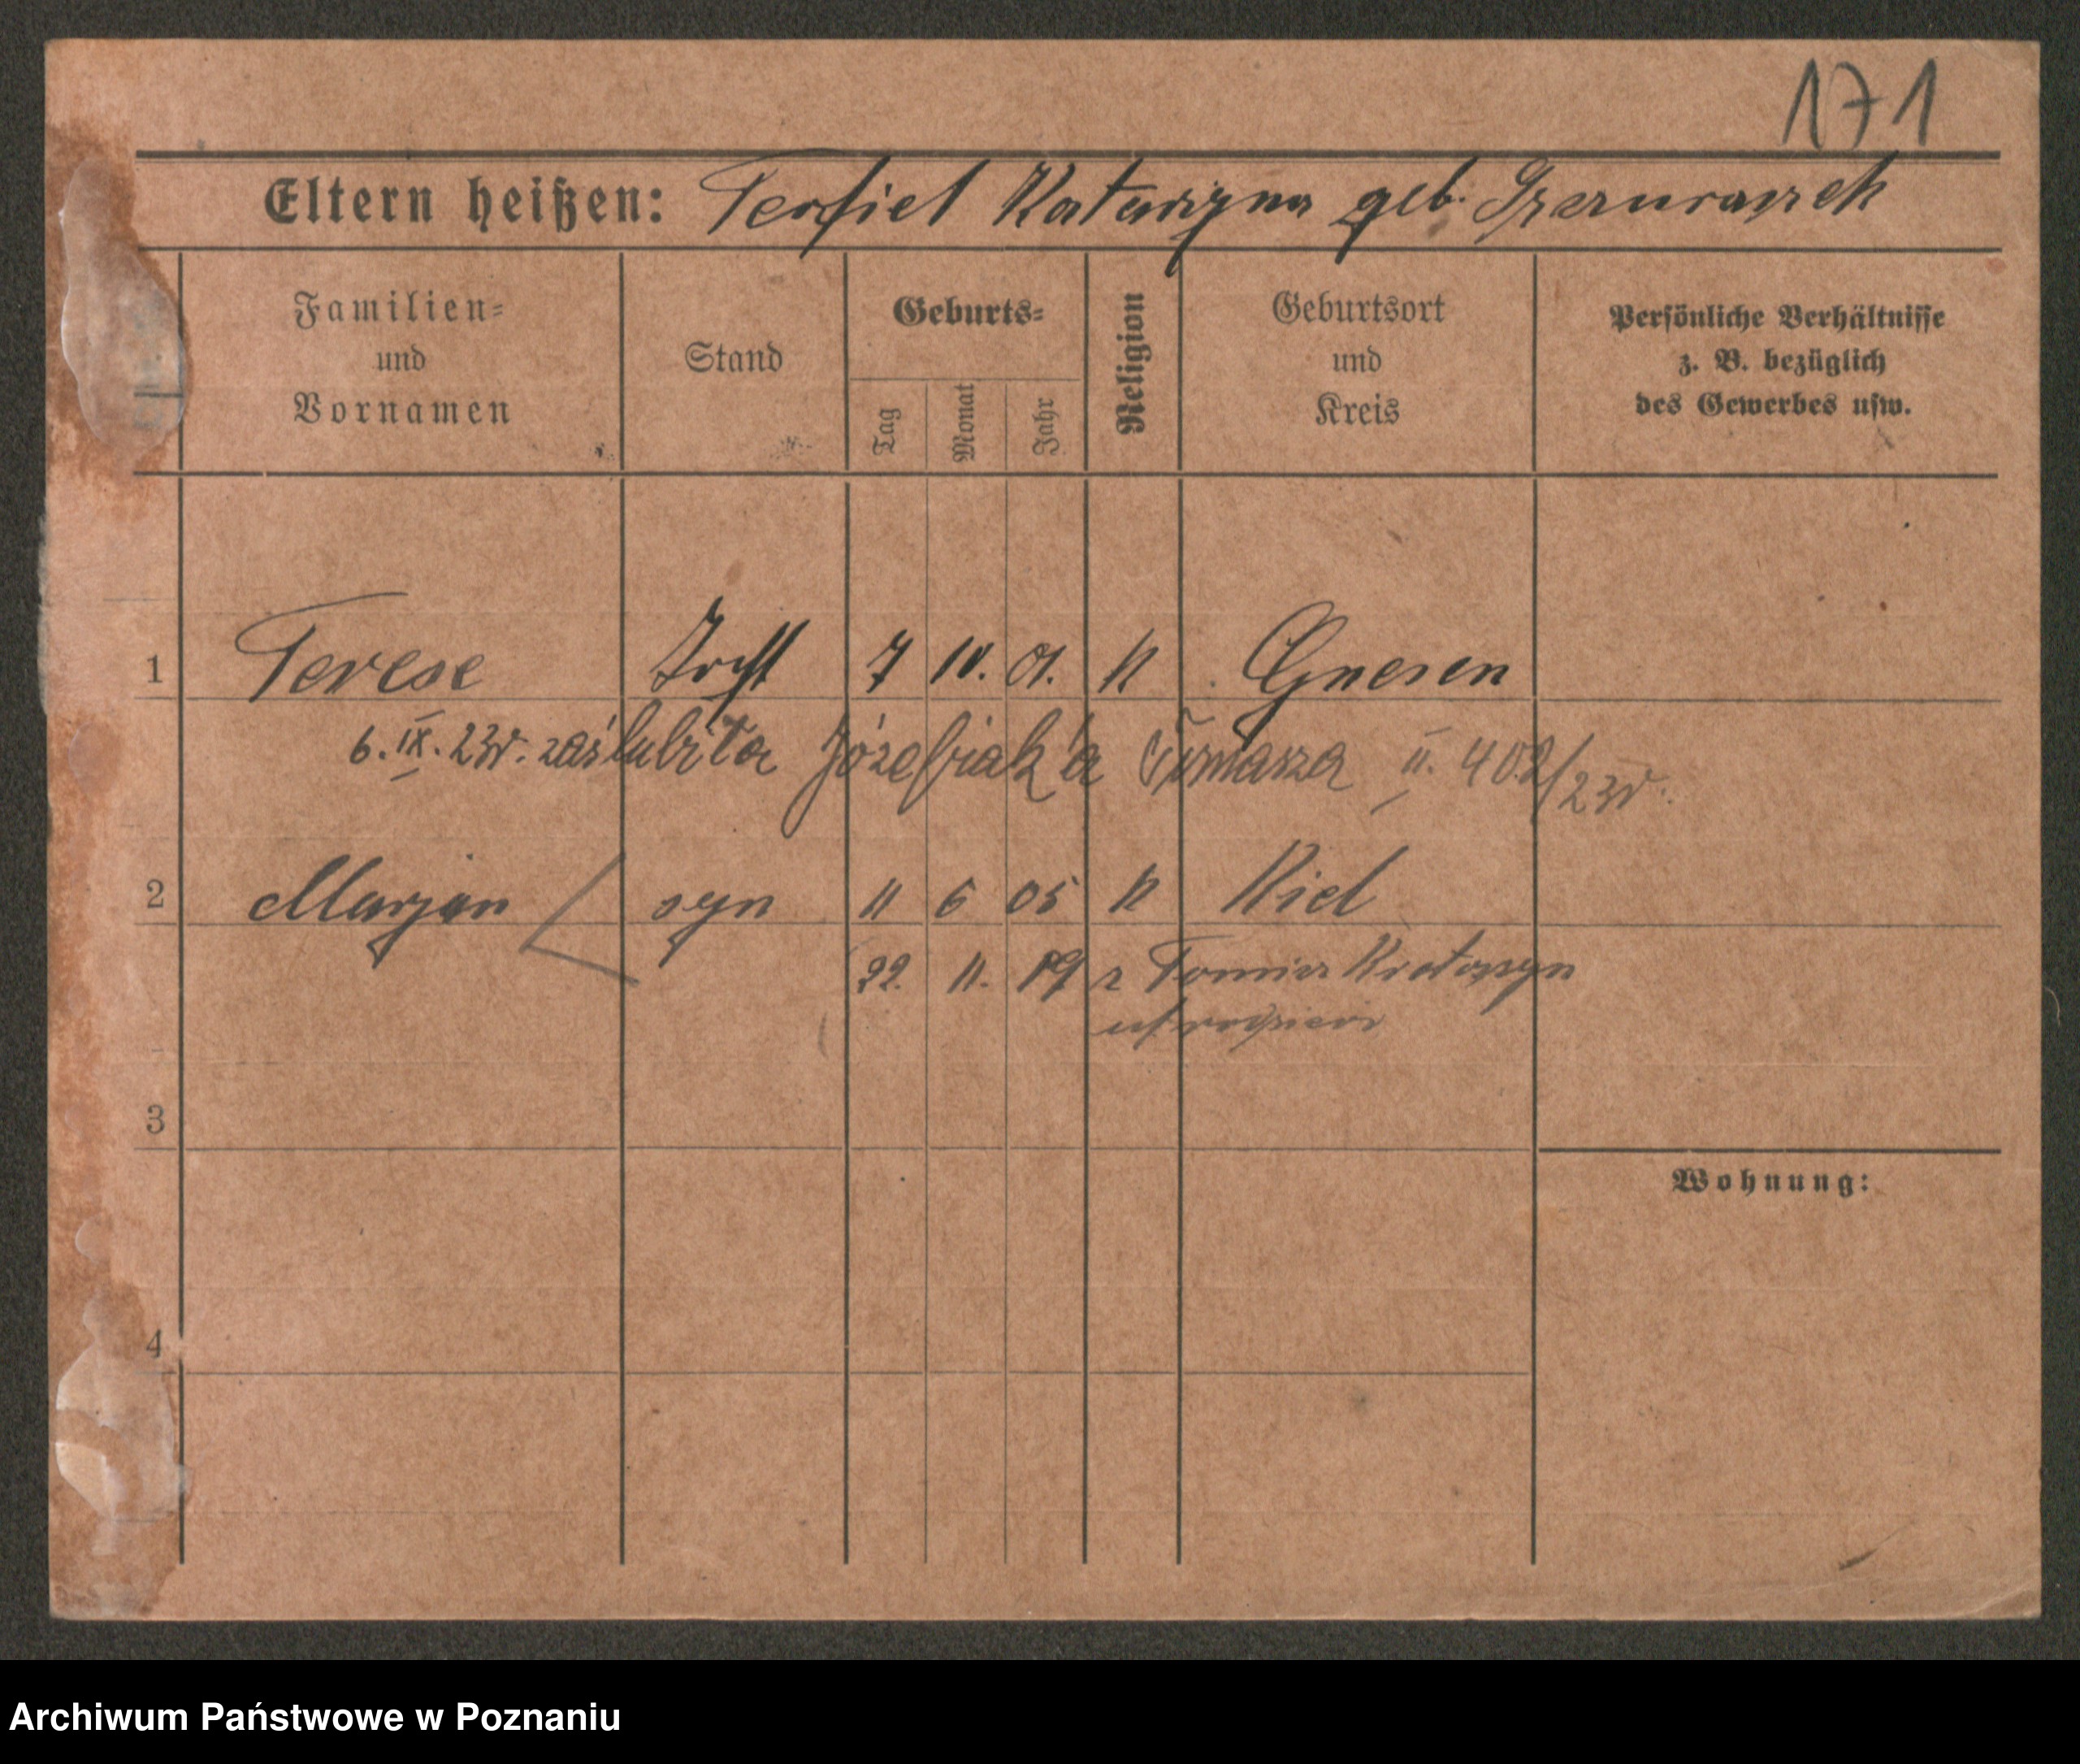 171
Eltern heißen: Terfiel Katarzyna geb.
Familien- und Vornamen
Stand
Geburts-
Tag
Monat
Jahr
Religion
Geburtsort und Kreis
Persönliche Verhältnisse z. B. bezüglich des Gewerbes usw.
1 Terese 7 01. K Gnesen
6. IX. 23r. zaślubiła Józefiak'a Tomasza II. 402/23r.
2 Marjan syn 11 6 05 K Kiel
22. 11. 19 z
3
Wohnung:
4
Archiwum Państwowe w Poznaniu